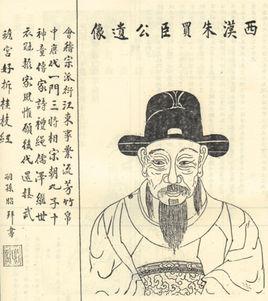 西漢朱買臣公遺像
會稽宗派衍江東事業流芳竹帛
中唐代一門三將相宋朝九子十
神童傳家詩禮綿儒澤繼世
衣冠家風惟願後代武
蟾宮好折桂枝紅
嗣孫拜書